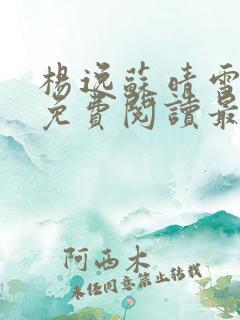 楊逸蘇晴雪
免費閱讀最
阿西木
未任同意禁止转载